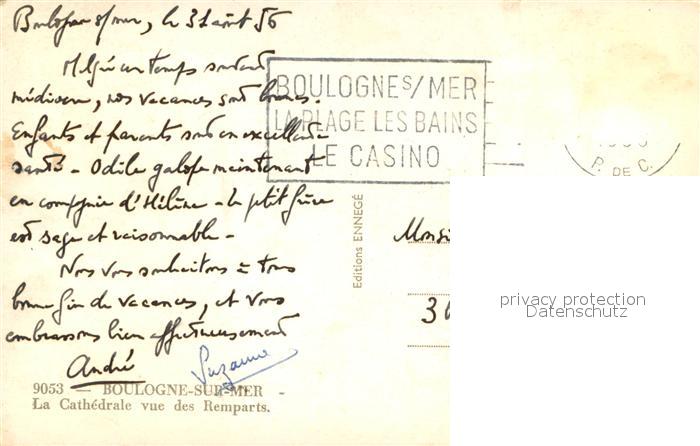 Boulogne s/mer, le 31 août 56
Malgré un temps surtout
médiocre, nos vacances sont bonnes.
Enfants et parents sont en excellente
santé - Odile galope maintenant
en compagnie d'Hélène - le petit frère
est sage et raisonnable -
Nous vous souhaitons à tous
bonne fin de vacances, et vous
embrassons bien affectueusement
André Suzanne
9053 — BOULOGNE-SUR-MER -
La Cathédrale vue des Remparts.
BOULOGNE S/MER
LA PLAGE LES BAINS
LE CASINO
P. DE C.
Editions ENNEGÉ
Monsi
30
privacy protection
Datenschutz